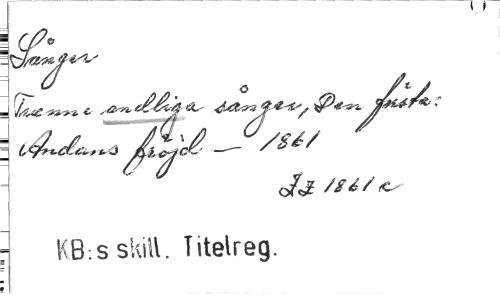 Sånger
Trenne andliga sånger, Den första:
Andans fröjd – 1861
1861 c
KB:s skill. Titelreg.